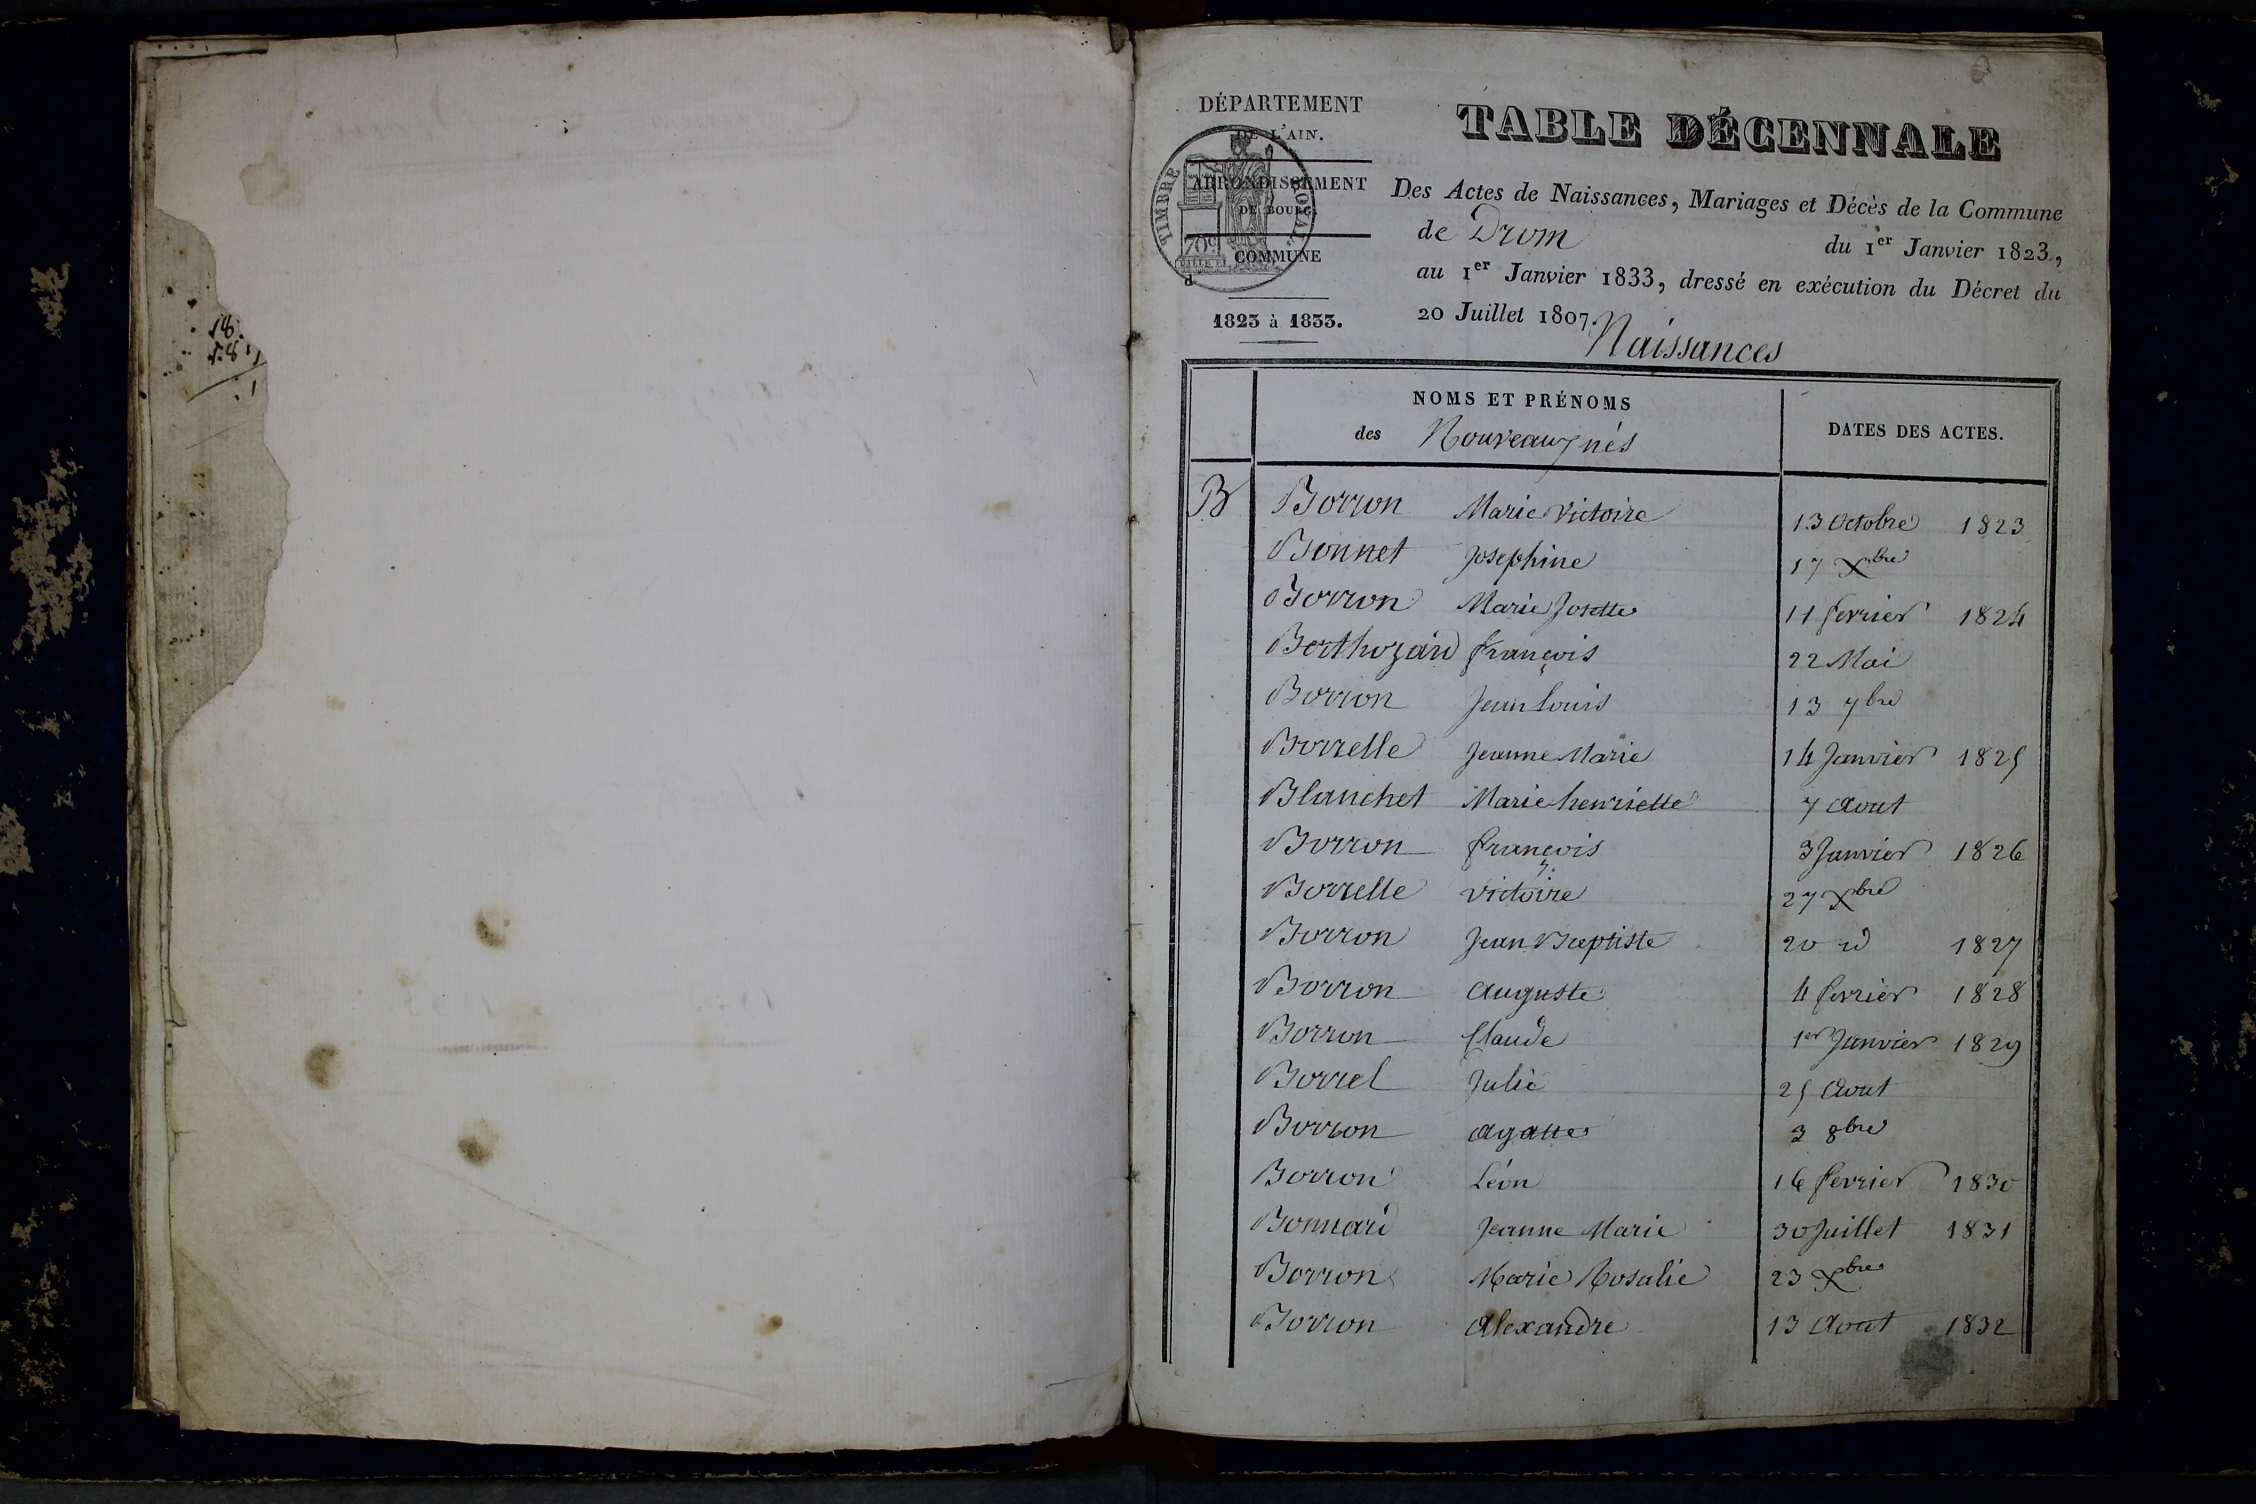 DÉPARTEMENT
DE L'AIN.
ARRONDISSEMENT
DE BOURG.
COMMUNE
d
1823 à 1833.
TIMBRE ROYAL
70c
TABLE DÉCENNALE
Des Actes de Naissances, Mariages et Décès de la Commune
de Drom du 1er Janvier 1823,
au 1er Janvier 1833, dressé en exécution du Décret du
20 Juillet 1807.
Naissances
NOMS ET PRÉNOMS
des Nouveaux nés
DATES DES ACTES.
B Borron Marie Victoire 13 Octobre 1823
Bonnet Josephine 17 Xbre
Borron Marie Josette 11 fevrier 1824
Berthozard françois 22 Mai
Borron Jean Louis 13 7bre
Borrelle Jeanne Marie 14 Janvier 1825
Blanchet Marie henriette 7 Aout
Borron françois 3 Janvier 1826
Borrelle Victoire 27 Xbre
Borron Jean Baptiste 20 id 1827
Borron Auguste 4 fevrier 1828
Borron Claude 1er Janvier 1829
Borrel Julie 25 Aout
Borron Agatte 3 8bre
Borron Léon 16 fevrier 1830
Bonnard Jeanne Marie 30 Juillet 1831
Borron Marie Rosalie 23 Xbre
Borron Alexandre 13 Aout 1832